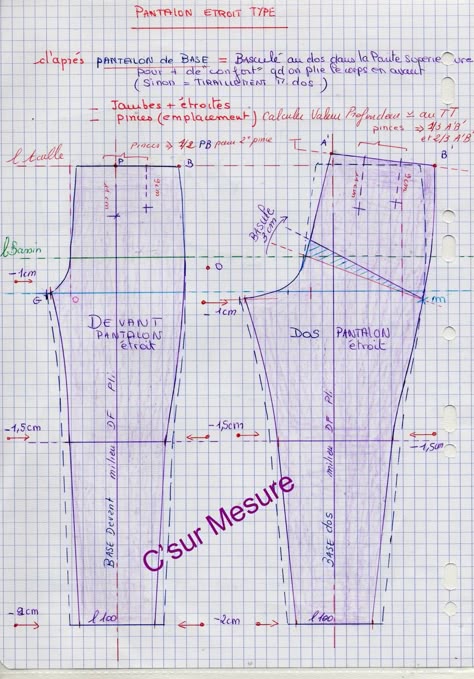 PANTALON ETROIT TYPE
d'après PANTALON de BASE = Basculé au dos dans la Partie Supérieure
pour + de confort qd on plie le corps en avant
(Sinon = TIRAILLEMENT M. dos.)
- Jambes + étroites
- pinces (emplacement) Calculer Valeur Profondeur au TT
pinces ⇒ 1/3 A'B'
et 2/3 A'B'
Pinces ⇒ 1/2 PB pour 2° pince
l taille
P
B
A'
B'
l Bassin
BASCULE
3cm
-1cm
O
G
-1cm
m
DEVANT
PANTALON
étroit
DOS PANTALON
étroit
-1,5cm
-1,5cm
-1,5cm
BASE Devant
milieu DF Pli
BASE dos
milieu DF Pli
C'sur Mesure
-2cm
l 100
-2cm
l 100